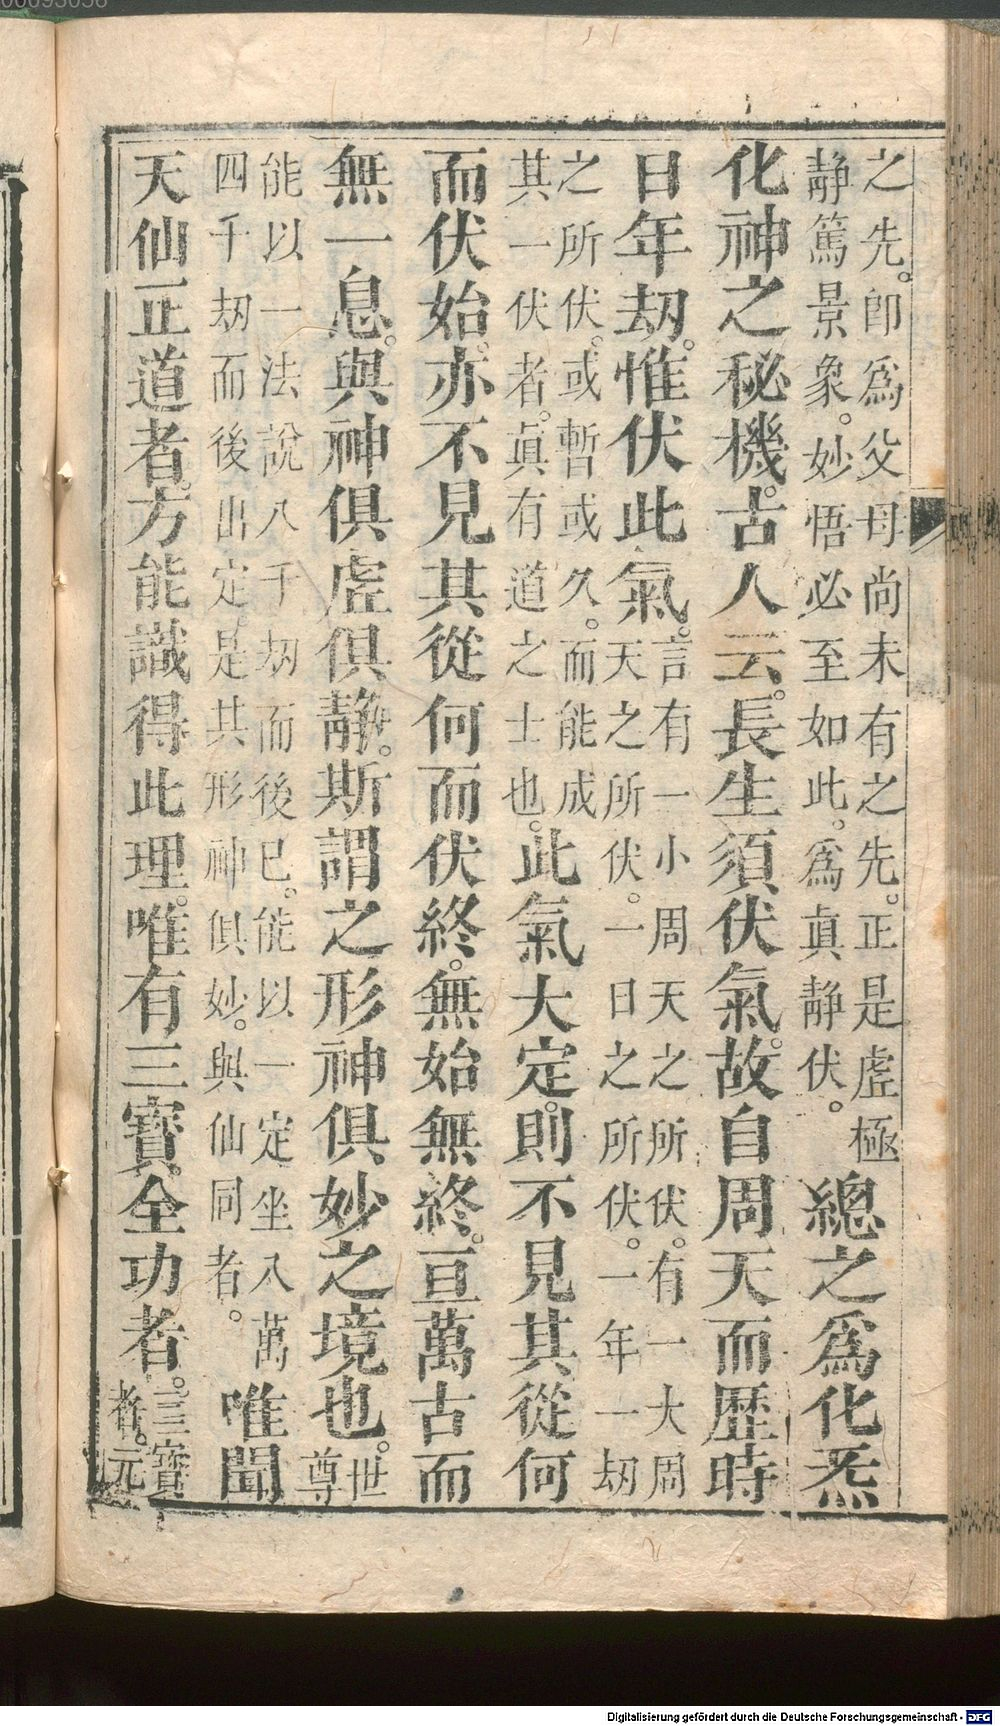 之先。卽爲父母尚未有之先。正是虛極
靜篤景象。妙悟必至如此。爲眞靜伏。
總之爲化炁
化神之秘機。古人云。長生須伏氣。故自周天而歷時
日年劫。惟伏此氣。
言有一小周天之所伏。有一大周
天之所伏。一日之所伏。一年一劫
之所伏。或暫或久。而能成
其一伏者。眞有道之士也。
此氣大定。則不見其從何
而伏始。亦不見其從何而伏終。無始無終。亘萬古而
無一息。與神俱虛俱靜。斯謂之形神俱妙之境也。
世
尊
能以一法說八千劫而後已。能以一定坐八萬
四千劫而後出定是其形神俱妙。與仙同者。
唯聞
天仙正道者。方能識得此理。唯有三寶全功者。
三寶
者。元
Digitalisierung gefördert durch die Deutsche Forschungsgemeinschaft - DFG